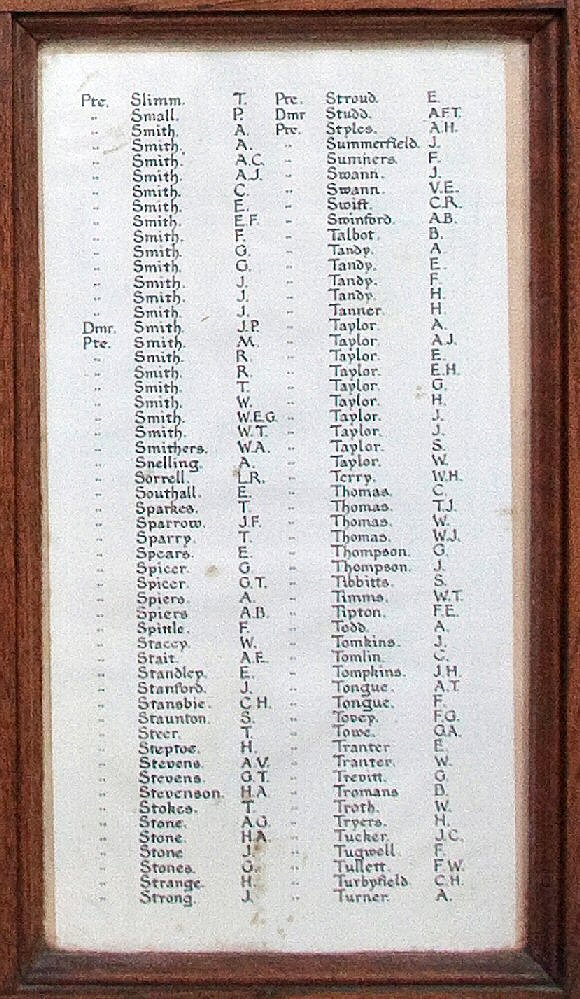 Pte. Slimm. T.
„ Small. P.
„ Smith. A.
„ Smith. A.
„ Smith. A.C.
„ Smith. A.J.
„ Smith. C.
„ Smith. E.
„ Smith. E.F.
„ Smith. F.
„ Smith. G.
„ Smith. G.
„ Smith. J.
„ Smith. J.
„ Smith. J.
Dmr. Smith. J.P.
Pte. Smith. M.
„ Smith. R.
„ Smith. R.
„ Smith. T.
„ Smith. W.
„ Smith. W.E.G.
„ Smith. W.T.
„ Smithers. W.A.
„ Snelling. A.
„ Sorrell. L.R.
„ Southall. E.
„ Sparkes. T.
„ Sparrow. J.F.
„ Sparry. T.
„ Spears. E.
„ Spicer. G.
„ Spicer. G.T.
„ Spiers. A.
„ Spiers A.B.
„ Spittle. F.
„ Stacey. W.
„ Stait. A.E.
„ Standley. E.
„ Stanford. J.
„ Stansbie. C.H.
„ Staunton. S.
„ Steer. T.
„ Steptoe. H.
„ Stevens. A.V.
„ Stevens. G.T.
„ Stevenson. H.A.
„ Stokes. T.
„ Stone. A.G.
„ Stone. H.A.
„ Stone J.
„ Stones. G.
„ Strange. H.
„ Strong. J.
Pte. Stroud. E.
Dmr Studd. A.F.T.
Pte. Styles. A.H.
„ Summerfield. J.
„ Sumners. F.
„ Swann. J.
„ Swann. V.E.
„ Swift. C.R.
„ Swinford. A.B.
„ Talbot. B.
„ Tandy. A.
„ Tandy. E.
„ Tandy. F.
„ Tandy. H.
„ Tanner. H.
„ Taylor. A.
„ Taylor. A.J.
„ Taylor. E.
„ Taylor. E.H.
„ Taylor. G.
„ Taylor. H.
„ Taylor. J.
„ Taylor. J.
„ Taylor. S.
„ Taylor. W.
„ Terry. W.H.
„ Thomas. C.
„ Thomas. T.J.
„ Thomas. W.
„ Thomas. W.J.
„ Thompson. G.
„ Thompson. J.
„ Tibbitts. S.
„ Timms. W.T.
„ Tipton. F.E.
„ Todd. A.
„ Tomkins. J.
„ Tomlin. C.
„ Tompkins. J.H.
„ Tongue. A.T.
„ Tongue. F.
„ Tovey. F.G.
„ Towe. O.A.
„ Tranter E.
„ Tranter. W.
„ Trevitt. G.
„ Tromans B.
„ Troth. W.
„ Tryers. H.
„ Tucker. J.C.
„ Tugwell F.
„ Tullett. F.W.
„ Turbyfield C.H.
„ Turner. A.